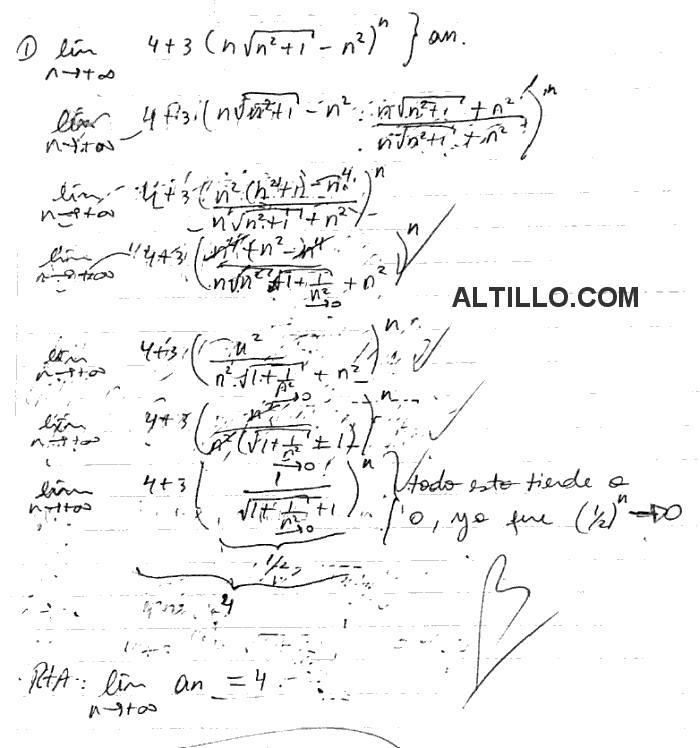 ① lím n→+∞ 4+3 (n√(n²+1) - n²)ⁿ } an.
lím n→+∞ 4+3 (n√(n²+1) - n² · (n√(n²+1) + n²)/(n√(n²+1) + n²))ⁿ
lím n→+∞ 4+3 ((n²(n²+1) - n⁴)/(n√(n²+1) + n²))ⁿ
lím n→+∞ 4+3 ((n⁴ + n² - n⁴)/(n√n² √(1+1/n²) + n²))ⁿ →0
ALTILLO.COM
lím n→+∞ 4+3 (n²/(n² · √(1+1/n²) + n²))ⁿ →0
lím n→+∞ 4+3 (n²/(n² (√(1+1/n²) + 1)))ⁿ →0
lím n→+∞ 4+3 (1/(√(1+1/n²) + 1))ⁿ →0 } todo esto tiende a
0, ya que (1/2)ⁿ → 0
1/2
4
RTA: lím n→+∞ an = 4